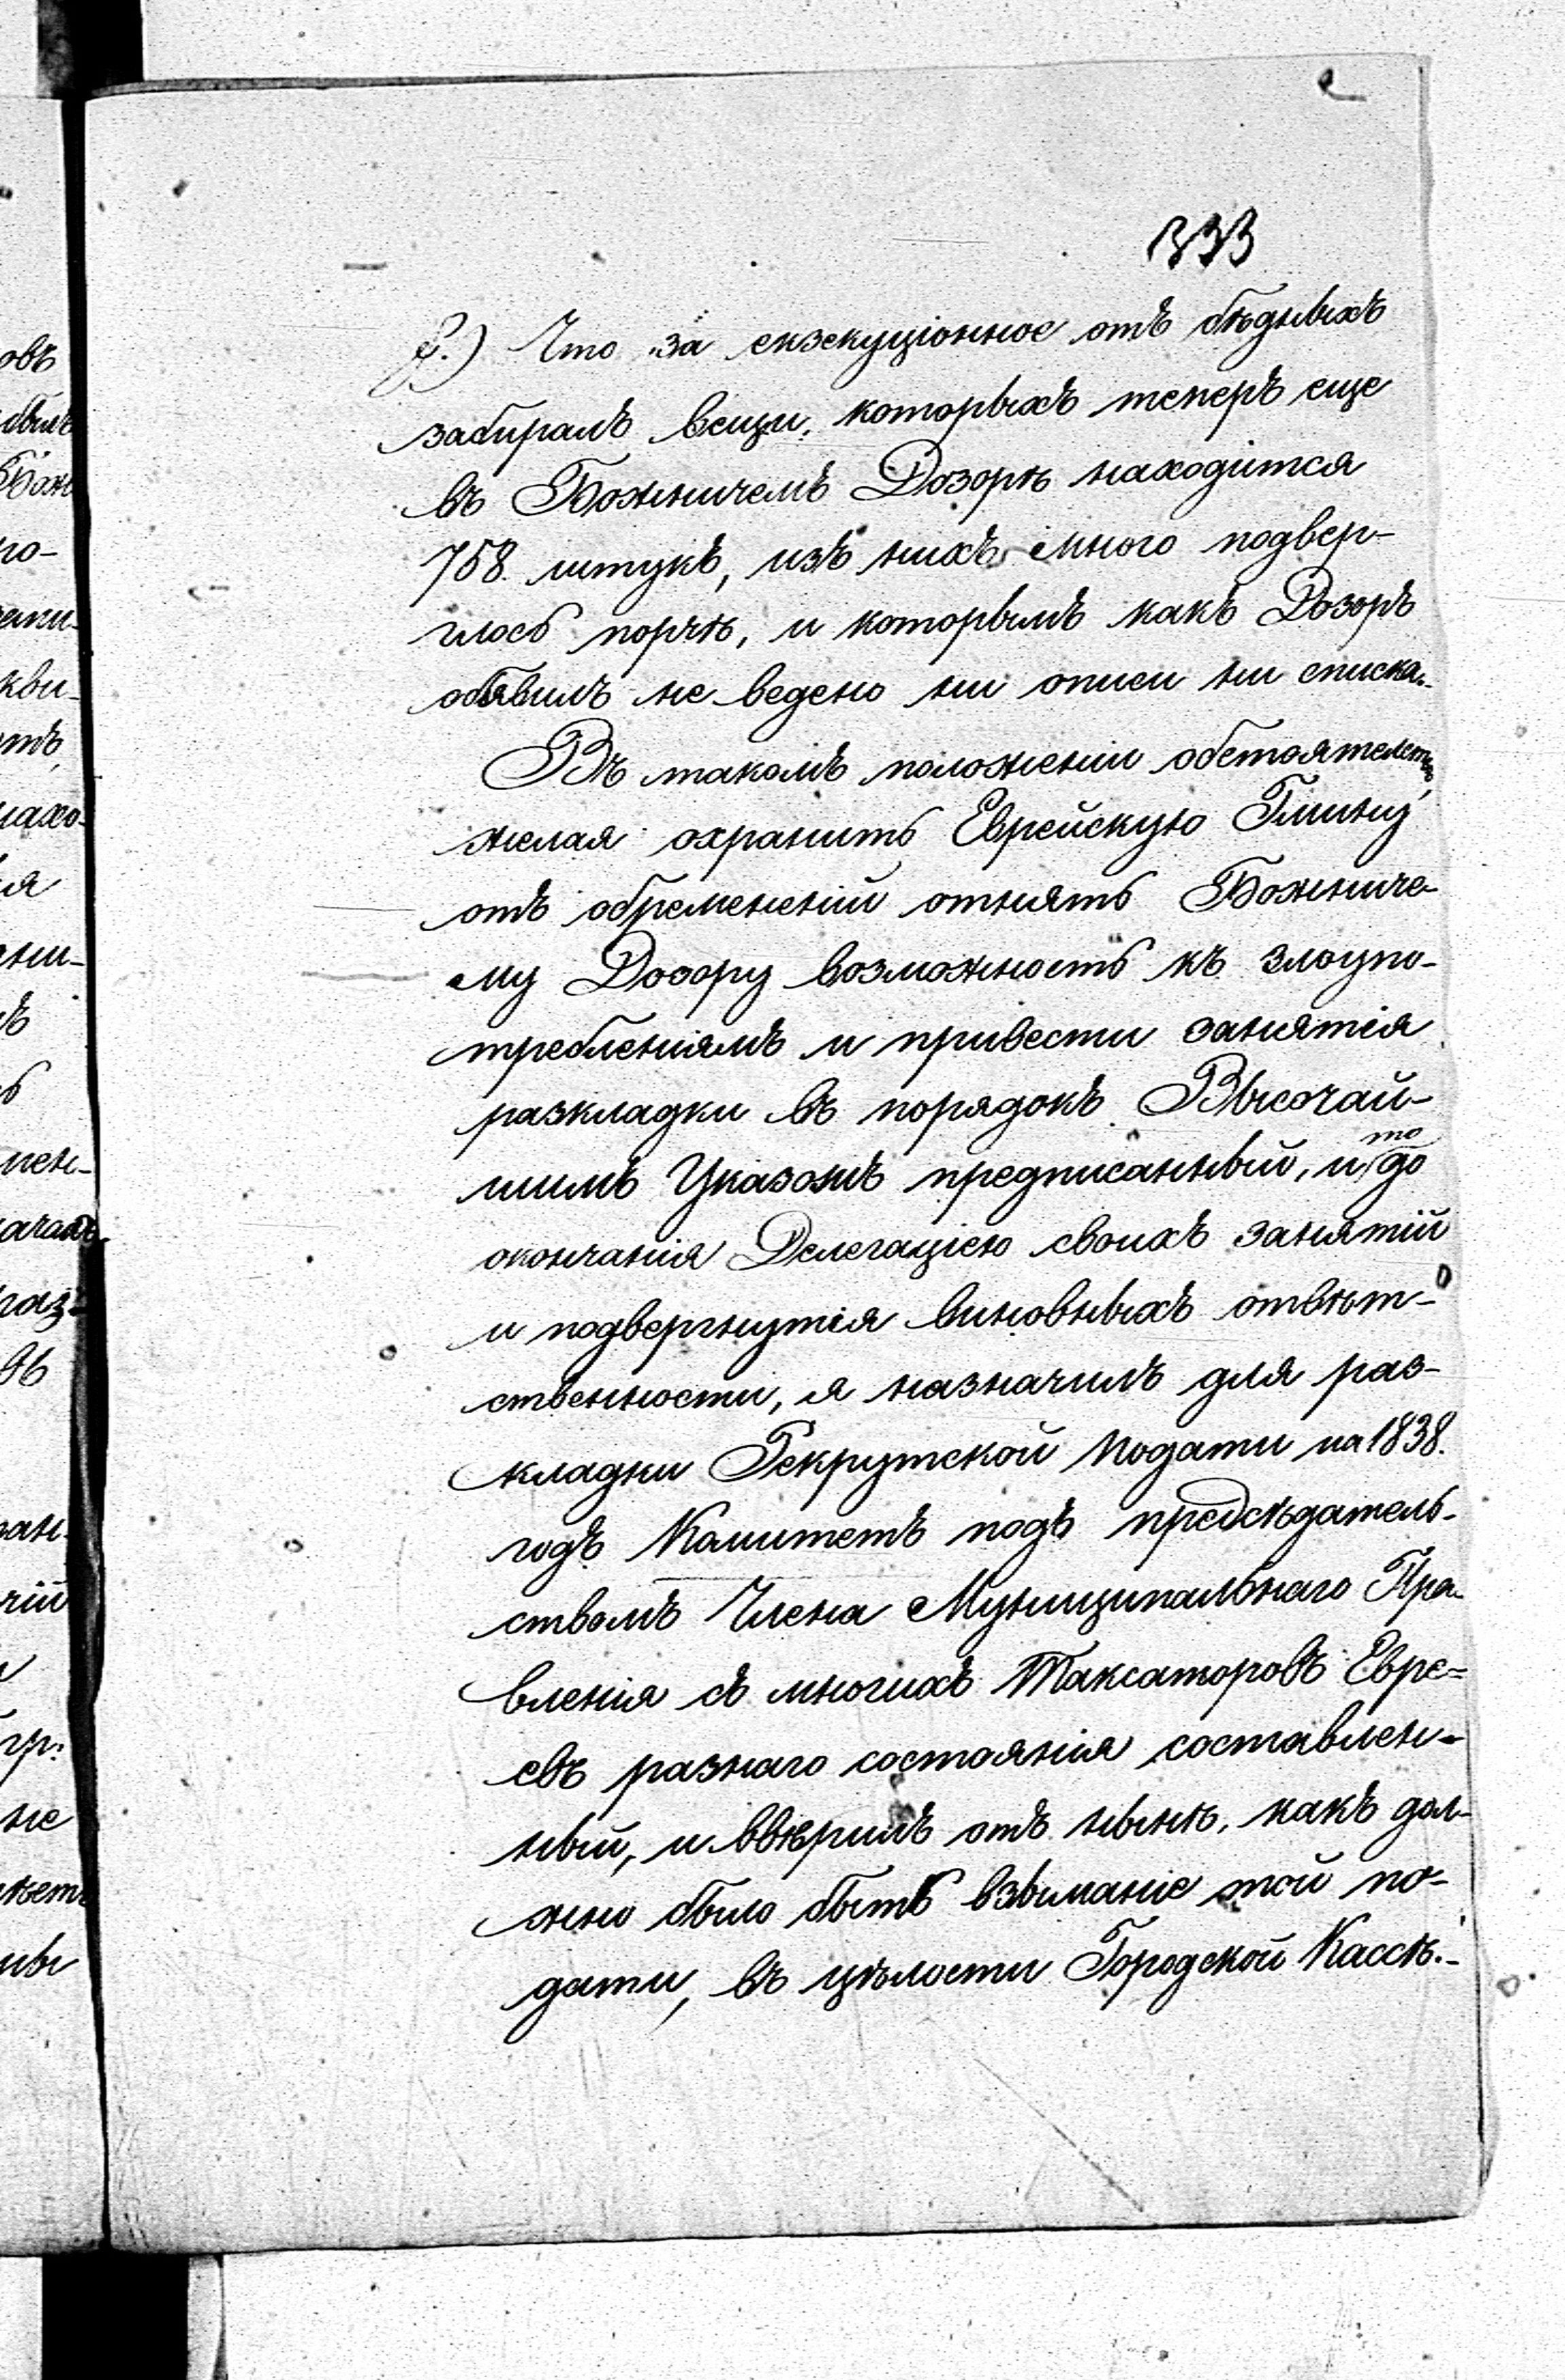 333
f.) Что за екзекуціонное отъ бѣдныхъ
забиралъ вещи, которыхъ теперъ еще
въ Божничемъ Дозорѣ находится
758. штукъ, изъ нихъ много подвер-
глось порчѣ, и которымъ какъ Дозоръ
объявилъ не ведено ни описи ни списка.
Въ такомъ положеніи обстоятельствъ,
желая охранить Еврейскую Гмину
отъ обремененій отнять Божниче-
му Дозору возможность къ злоупо-
требленіямъ и привести занятія
раскладки въ порядокъ Высочай-
шимъ Указомъ предписанный, и то до
окончанія Делегаціею своихъ занятій
и подвергнутія виновныхъ отвѣт-
ственности, я назначилъ для рас-
кладки Рекрутской Подати на 1838.
годъ Комитетъ подъ предсѣдатель-
ствомъ Члена Муниципальнаго Пра-
вленія съ многихъ Таксаторовъ Евре=
евъ разнаго состоянія составлен-
ный, и ввѣрилъ отъ нынѣ, какъ дол-
жно было быть взыманіе той по-
дати, въ цѣлости Городской Кассѣ.-
овъ
Бож
но-
кви-
отъ,
нахо-
ія
нъ
96
чій
гр.
не
ны